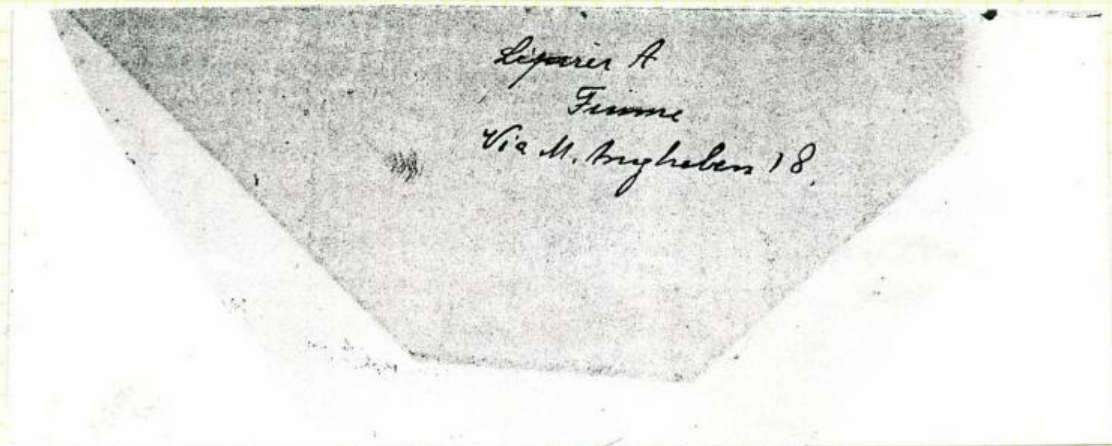 Lipsrer A
Fiume
Via M. Angheben 18.